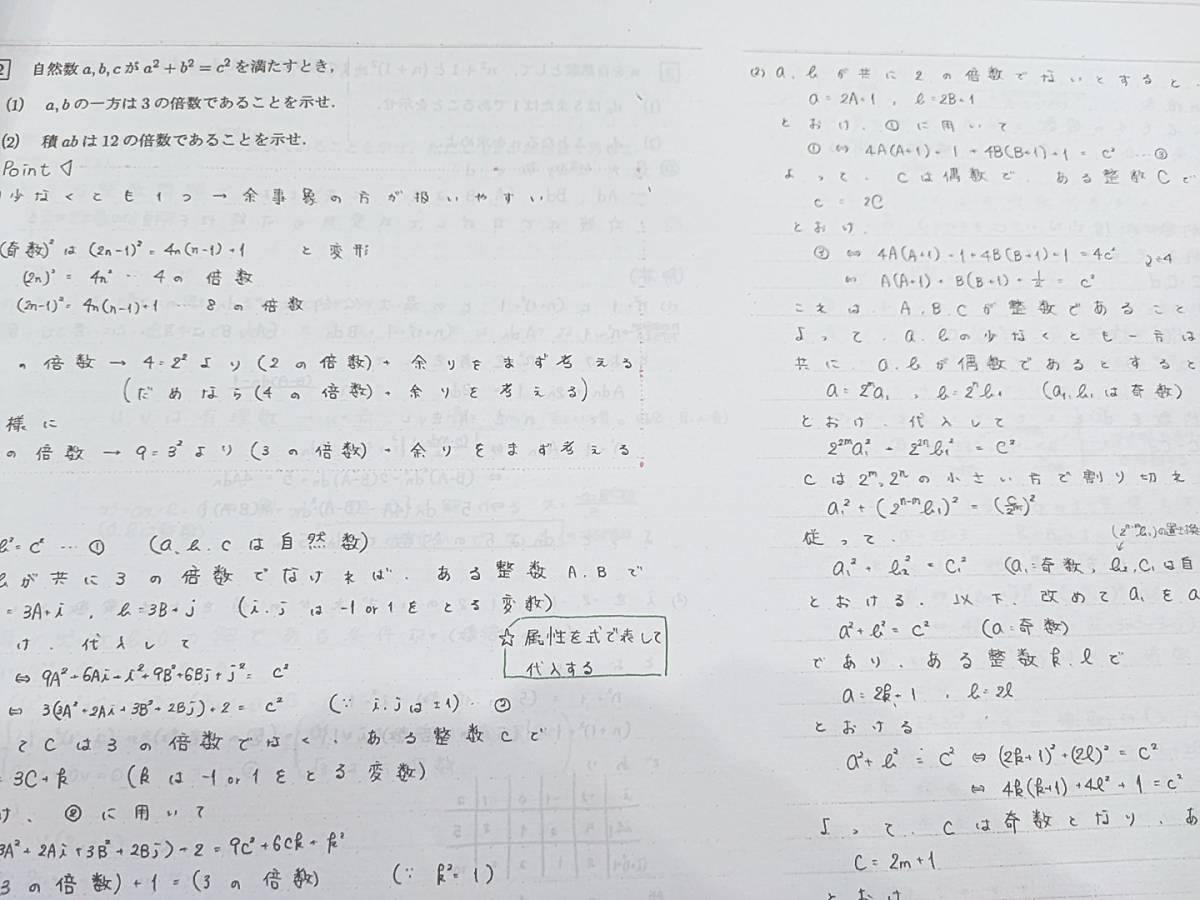 2 自然数 a, b, c が a² + b² = c² を満たすとき,
(1) a, b の一方は 3 の倍数であることを示せ.
(2) 積 ab は 12 の倍数であることを示せ.
Point
少なくとも1つ → 余事象の方が扱いやすい
(奇数)² は (2n-1)² = 4n(n-1)+1 と変形
(2n)² = 4n² … 4の倍数
(2n-1)² = 4n(n-1)+1 8の倍数
の倍数 → 4=2² より (2の倍数)+余りをまず考える
(だめなら(4の倍数)+余りを考える)
様に
の倍数 → 9=3² より (3の倍数)+余りをまず考える
b²=c² … ① (a, b, c は自然数)
が共に3の倍数でなければ, ある整数A, Bで
=3A+i, b=3B+j (i, j は -1 or 1 をとる変数)
け, 代入して
☆ 属性を式で表して
代入する
⇔ 9A²+6Ai+i²+9B²+6Bj+j²= c²
⇔ 3(3A²+2Ai+3B²+2Bj)+2 = c² (∵ i, j は ±1) … ②
てCは3の倍数ではなく, ある整数Cで
3C+k (kは -1 or 1 をとる変数)
け, ②に用いて
3A²+2Ai+3B²+2Bj)+2 = 9C²+6Ck+k²
3の倍数)+1 = (3の倍数) (∵ k²=1)
(2) a, b が共に2の倍数でないとすると
a = 2A+1, b = 2B+1
とおけ, ①に用いて
① ⇔ 4A(A+1)+1+4B(B+1)+1 = c² … ③
よって, cは偶数で, ある整数Cで
c = 2C
とおけ,
⇔ 4A(A+1)+1+4B(B+1)+1 = 4c²
⇔ A(A+1)+B(B+1)+½ = c²
これは A, B, C が整数であること
よって, a, b の少なくとも一方は
共に, a, b が偶数であるとすると
a = 2ᵐa₁, b = 2ⁿb₁ (a₁, b₁ は奇数)
とおけ, 代入して
2²ᵐa₁² + 2²ⁿb₁² = c²
cは 2ᵐ, 2ⁿ の小さい方で割り切れ
a₁² + (2ⁿ⁻ᵐb₁)² = (c/2ᵐ)²
従って, (2ⁿ⁻ᵐb₁)の置き換
a₁² + b₂² = c₁² (a₁: 奇数, b₂, c₁ は自
とおける. 以下, 改めて a₁ を a
a² + b² = c² (a: 奇数)
であり, ある整数 k, l で
a = 2k+1, b = 2l
とおける
a² + b² = c² ⇔ (2k+1)² + (2l)² = c²
⇔ 4k(k+1)+4l²+1 = c²
よって, cは奇数となり, あ
c = 2m+1
とおけ